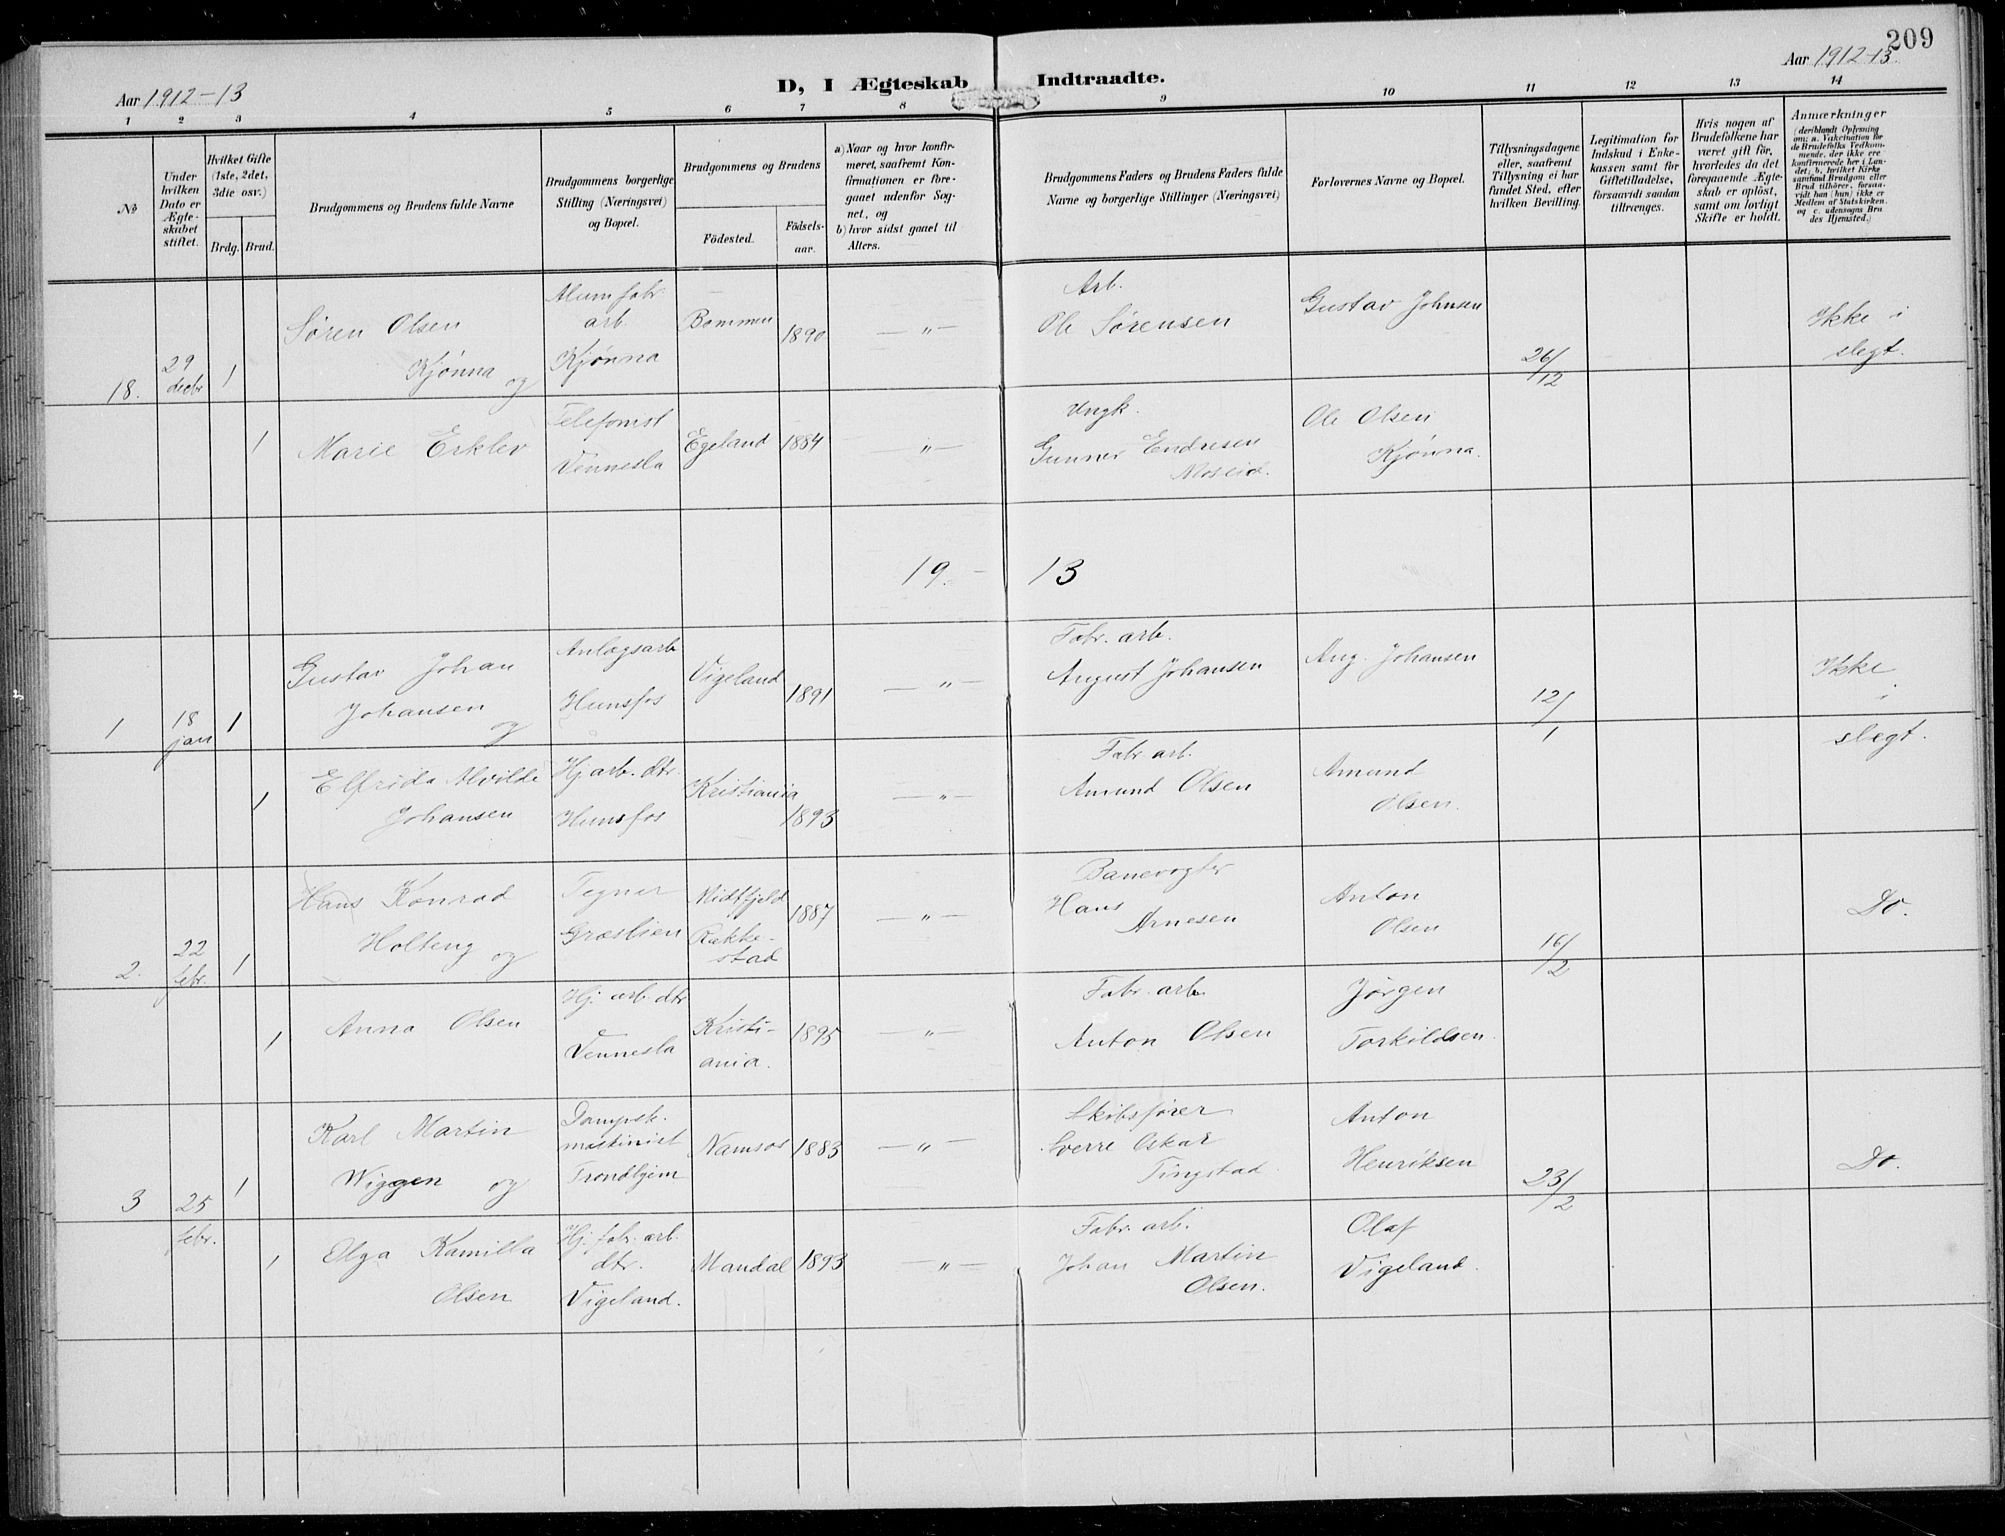 209
Aar 1912-13
D, I Ægteskab Indtraadte.
Aar 1912-13
1 2 3 4 5 6 7 8 9 10 11 12 13 14
No
Under hvilken Dato er Ægteskabet stiftet.
Hvilket Gifte (1ste, 2det, 3die osv.)
Brdg. Brud.
Brudgommens og Brudens fulde Navne
Brudgommens borgerlige Stilling (Næringsvei) og Bopæl.
Brudgommens og Brudens
Födested.
Födsels-aar.
a) Naar og hvor konfirmeret, saafremt Konfirmationen er foregaaet udenfor Sognet, og
b) hvor sidst gaaet til Alters.
Brudgommens Faders og Brudens Faders fulde Navne og borgerlige Stillinger (Næringsvei)
Forlovernes Navne og Bopæl.
Tillysningsdagene eller, saafremt Tillysning ei har fundet Sted, efter hvilken Bevilling.
Legitimation for Indskud i Enkekassen samt for Giftetilladelse, forsaavidt saadan tiltrænges.
Hvis nogen af Brudefolkene har været gift för, hvorledes da det foregaaende Ægteskab er oplöst, samt om lovligt Skifte er holdt.
Anmærkninger
(deriblandt Oplysning om: a. Vakcination for de Brudefolks Vedkommende, der ikke ere konfirmerede her i Landet; b. hvilket Kirkesamfund Brudgom eller Brud tilhörer, forsaavidt han (hun) ikke er Medlem af Statskirken, og c. udensogns Brudes Hjemsted.)
18. 29 decbr 1
Søren Olsen Kjønna og
Alum.fabr. arb. Kjønna
Bommen 1890 — " —
Arb. Ole Sørensen
Gustav Johnsen
26/12
Ikke i slegt.
1
Marie Erklev
Telefonist Vennesla
Egeland 1884 — " —
Ungk. Gunner Endresen Moseid.
Ole Olsen Kjønna.
19 - 13
1 18 jan 1
Gustav Johan Johansen og
Anlægsarb Hunsfos
Vigeland 1891 — " —
Fabr. arb. August Johansen
Aug. Johansen
12/1
Ikke i slegt.
1
Elfrida Alvilde Johansen
Hj. arb. dtr. Hunsfos
Kristiania 1893 — " —
Fabr. arb. Amund Olsen
Amund Olsen.
2. 22 febr. 1
Hans Konrad Holteng og
Tegner Græslien
Midtfjeld Rakkestad 1887 — " —
Banevogter Hans Arnesen
Anton Olsen
16/2
Do.
1
Anna Olsen
Hj. arb. dtr Vennesla
Kristiania. 1895 — " —
Fabr. arb. Anton Olsen
Jørgen Torkildsen.
3 25 febr. 1
Karl Martin Wiggen og
Dampsk. maskinist Trondhjem
Namsos 1883 — " —
Skibsfører Sverre Oskar Tingstad.
Anton Henriksen
23/2
Do.
1
Olga Kamilla Olsen
Hj. fabr. arb. dtr. Vigeland.
Mandal 1893 — " —
Fabr. arb. Johan Martin Olsen.
Olaf Vigeland.